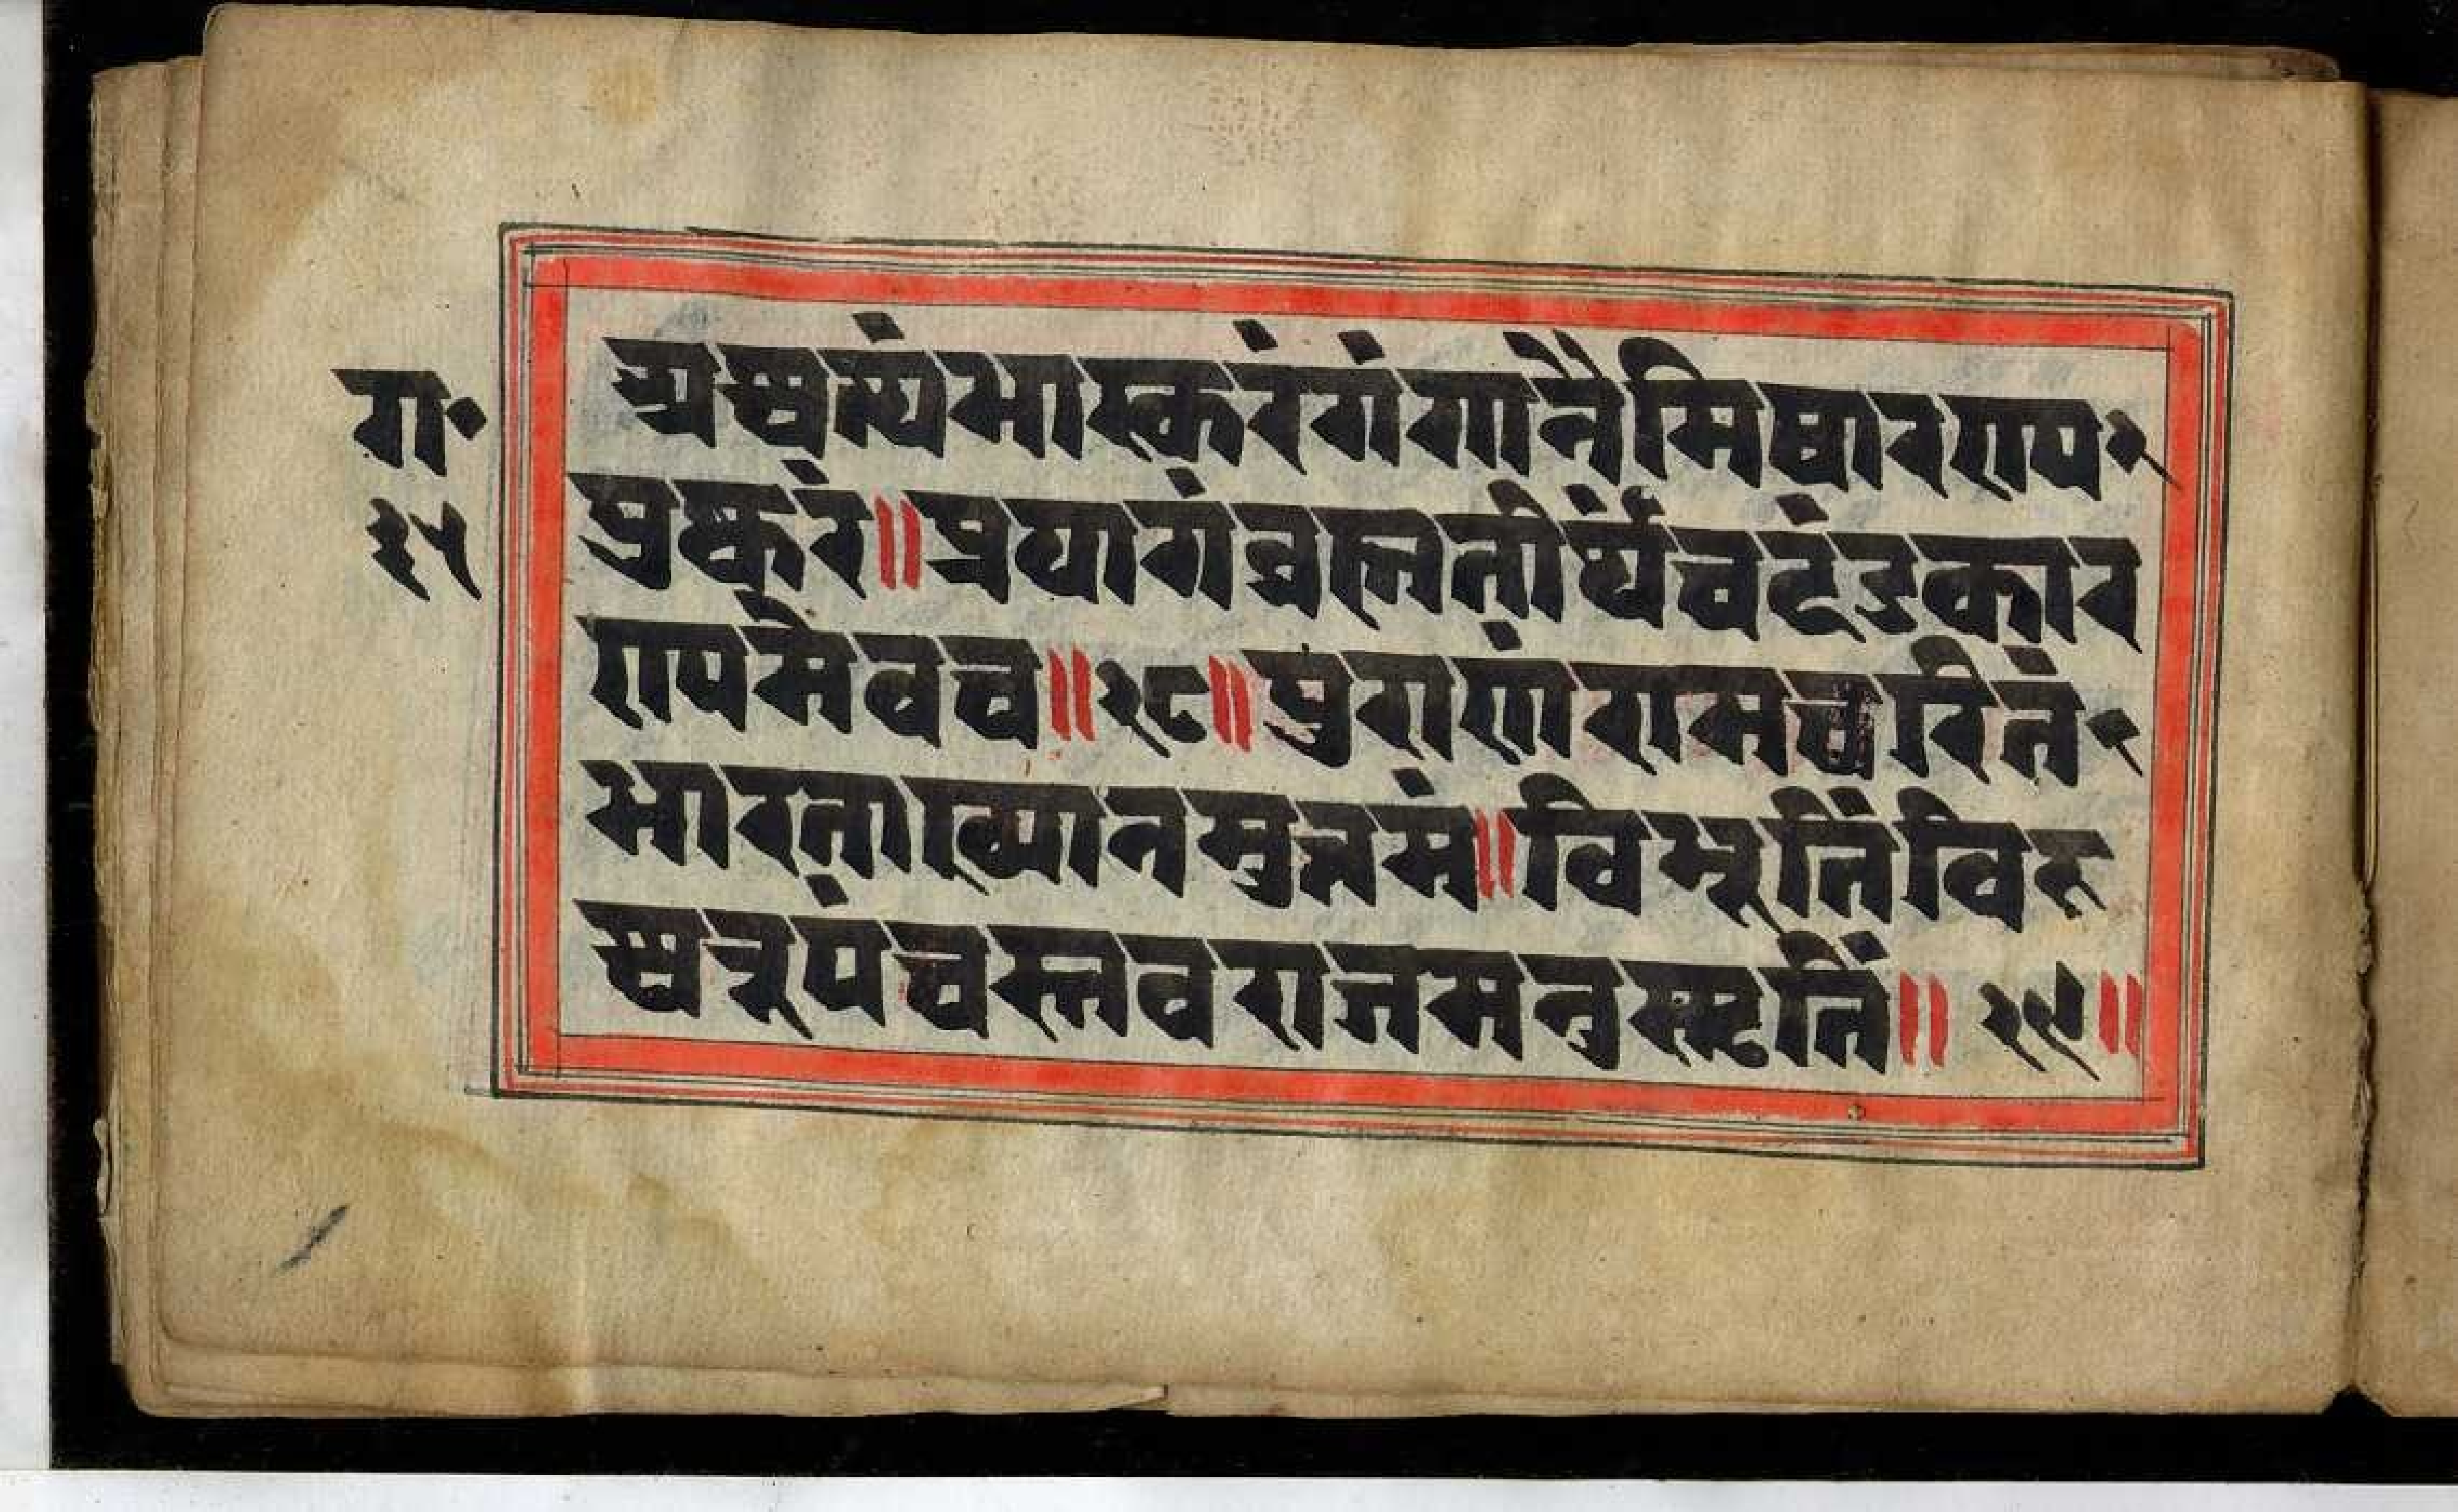 ग॰
३५
अश्वत्थंभास्करंगंगांनैमिषारण्यप॰
पुष्करं॥प्रयागंब्रह्मतीर्थंचदंडकार
ण्यमेवच॥२८॥पुराणंरामचरितं॰
भारताख्यानमुत्तमं॥विभूतिंविश्
वरूपंचस्तवराजमनुस्मृतिं॥२९॥